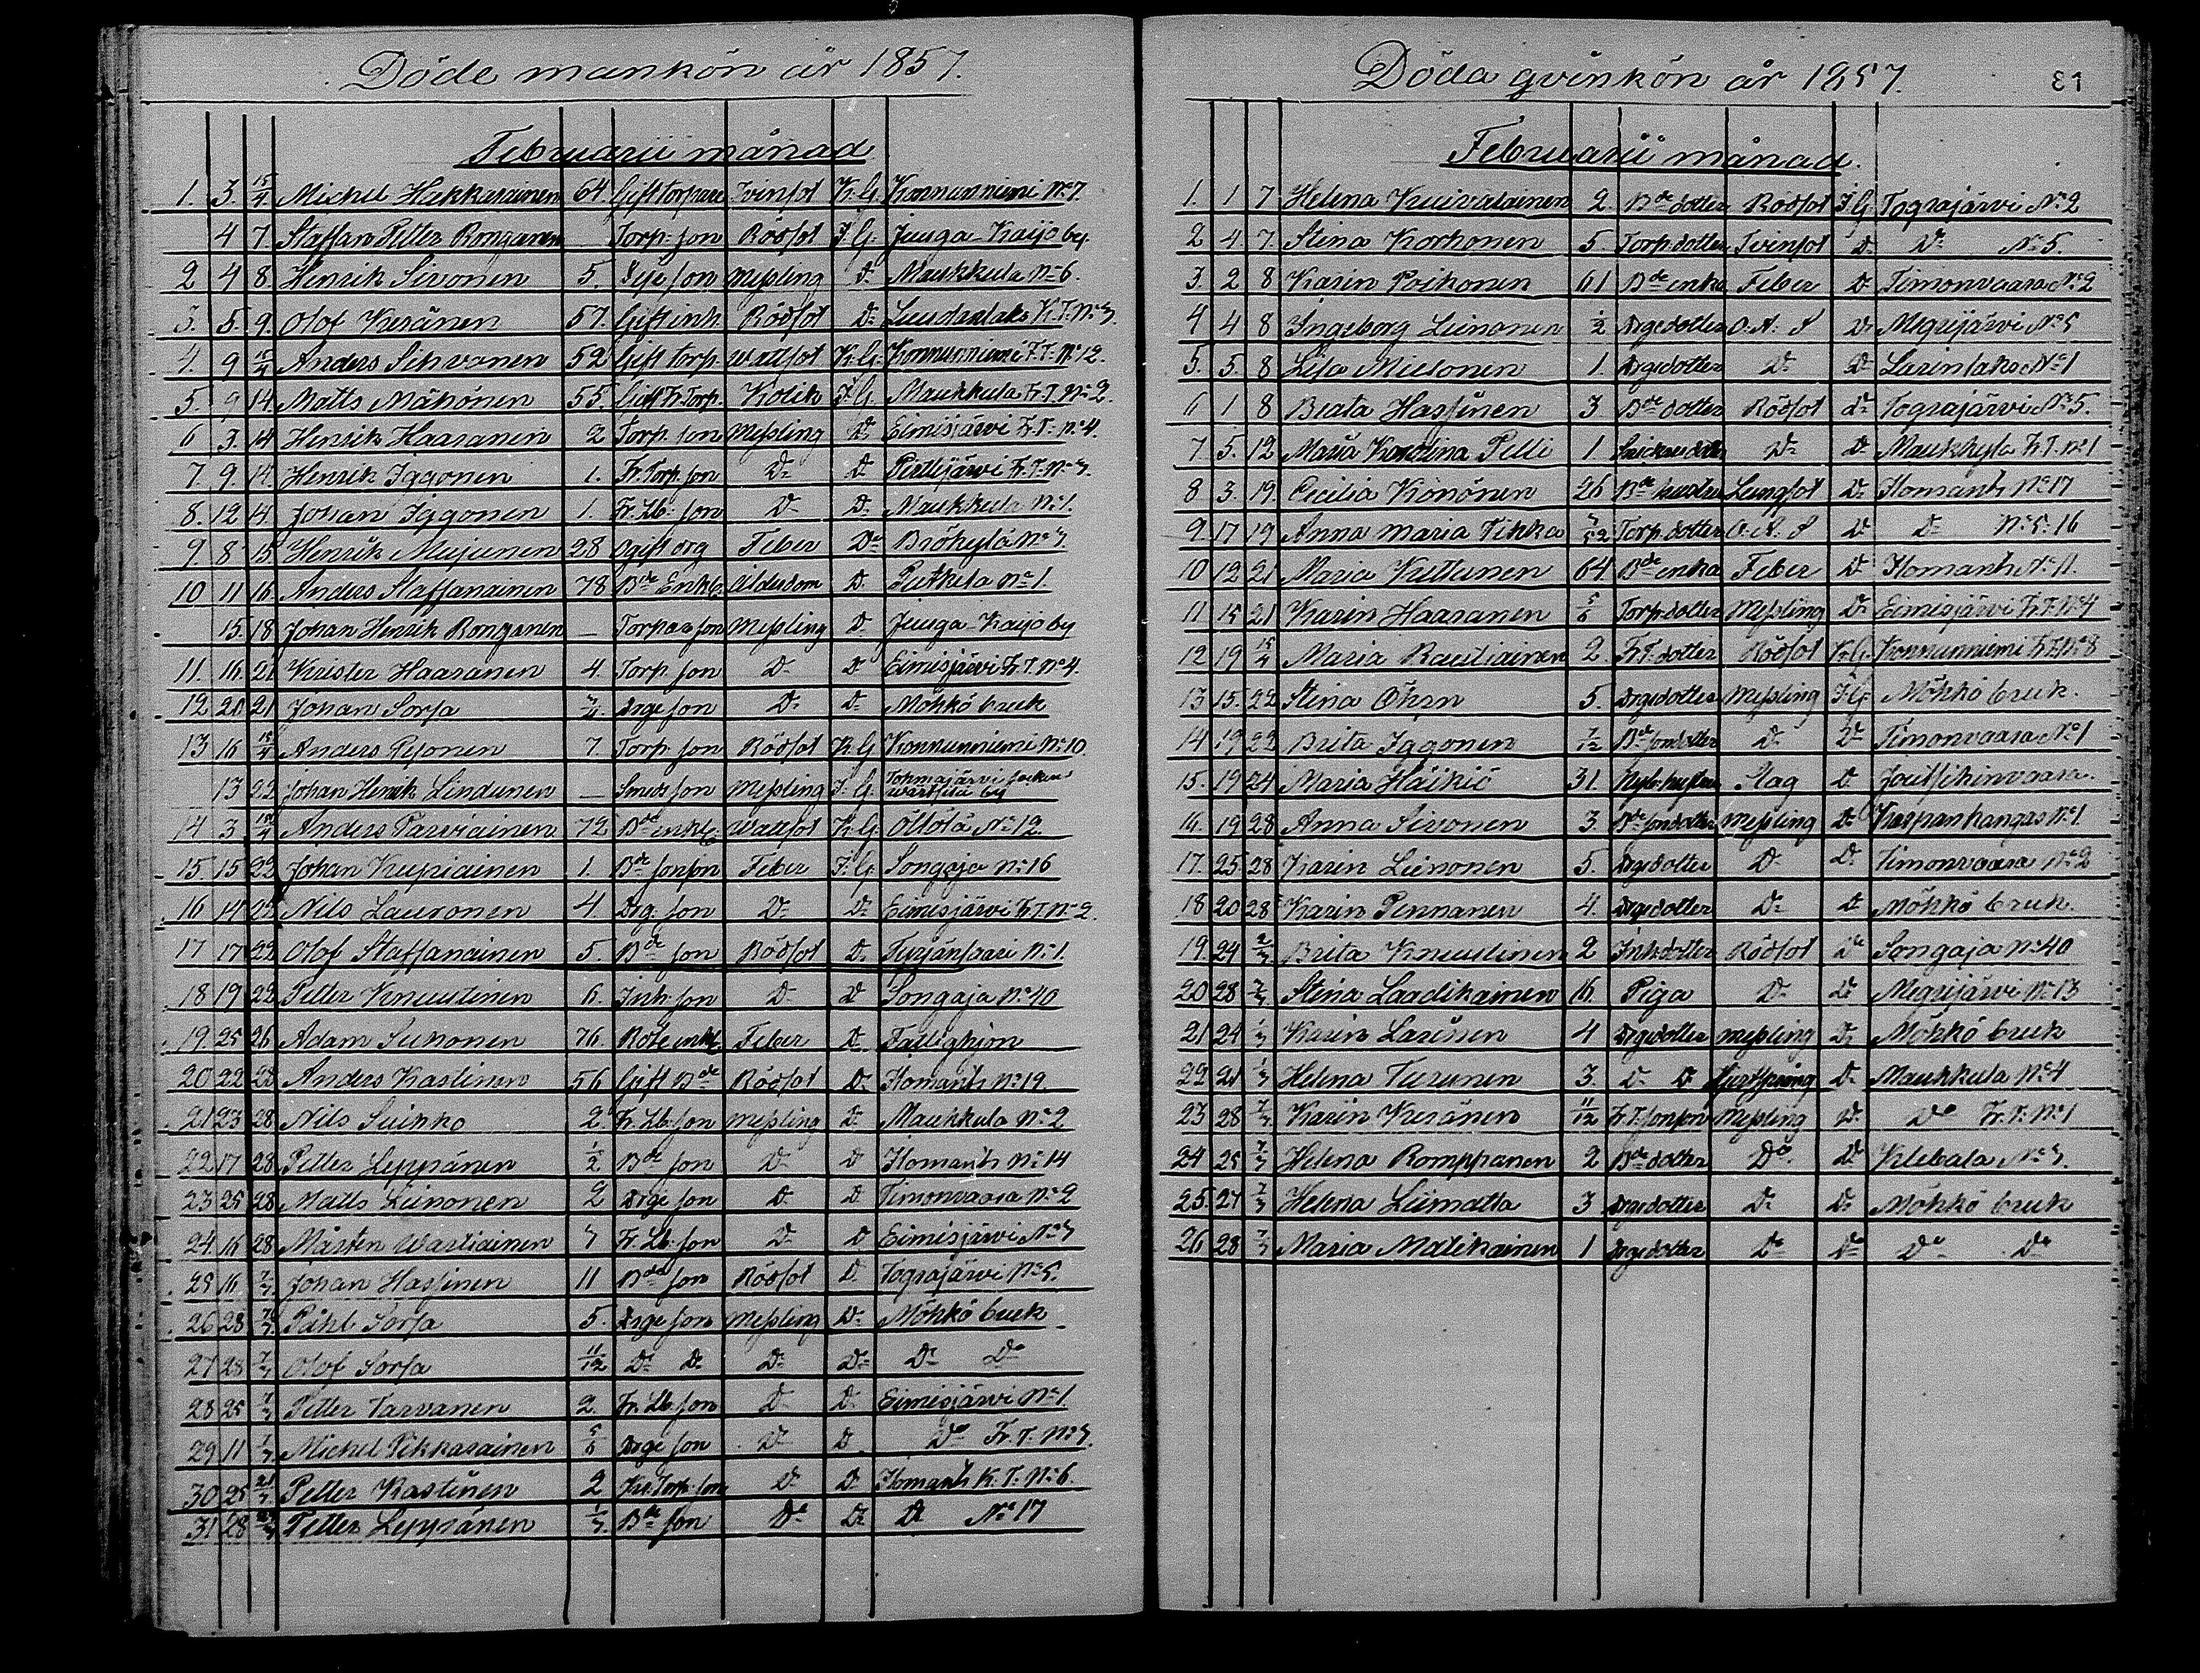 Döde mankön år 1857.
Februarii månad
1. 3. 15/4 Michel Hakkarainen 64. Gift torpare Tvinsot K. G. Konnunniemi No 7.
4 7 Staffan Petter Ronganen — Torp. son Rödsot F. G. Juuga Kaijo by.
2 4 8. Henrik Sivonen 5. son Messling Do Maukkula No 6.
3. 5. 9. Olof Kesänen 57. Gift inh. Rödsot Do K. T. No 3.
4. 9 15/4 Anders Sihvonen 52 Gift torp. Wattsot K. G. Konnunniemi F. T. No 12.
5. 9 14 Matts Mähönen 55. Gift K. Torp. Kolik F. G. Maukkula K. T. No 2.
6 3. 14 Henrik Haaranen 2 Torp. son Messling Do Eimisjärvi Fr. T. No 4.
7. 9. 14. Henrik Iggonen 1. Fr. Torp. son Do Do Fr. T. No 3.
8. 12 14 Johan Iggonen 1. Fr. Lb. son Do Do Maukkula No 1.
9. 8. 15 Henrik Mujunen 28 Ogift drg Feber Do No 3.
10 11 16. Anders Staffanainen 78 Bde Enkl. ålderdom Do Putkela No 1.
15. 18 Johan Henrik Ronganen — Torpare son Messling Do Juuga Kaijo by
11. 16. 21 Krister Haaranen 4. Torp. son Do Do Eimisjärvi Fr. T. No 4.
12 20 21 Johan Sorsa Drge son Do Do Möhkö bruk
13 16 15/4 Anders Pesonen 7. Torp. son Rödsot K. G Konnunniemi No 10
13 22 Johan Henrik Lindunen — Smeds son Messling F. G. Tohmajärvi socken Wärtsilä by
14 3. 15/4 Anders Parviainen 72 Bde enkl. Wattsot K. G. Ottola No 12.
15. 15 22 Johan Kupiainen 1. Bde sonson Feber F. G Songaja No 16
16 14 22 Nils Lauronen 4. Drg. son Do Do Eimisjärvi Fr. T. No 2.
17 17 22 Olof Staffanainen 5. Bde son Rödsot Do Turjänsaari No 1.
18 19 22 Petter Knuutinen 6. Inh. son Do Do Songaja No 40
19. 25 26 Adam Sukonen 76. Rote enkl. Feber Do Fattighjon
20 22 28 Anders Kastinen 56 Gift Bde Rödsot Do Ilomants No 19
21 23 28 Nils Suikko 2. Fr. Lb. son Messling Do Maukkula No 2
22 17 28 Petter Leppänen 1/2 Bde son Do Do Ilomants No 14
23 25 28 Matts Leinonen 2 Drge son Do Do Timonvaara No 2
24. 16 28 Mårten Wartiainen 3 Fr. Lb. son Do Do Eimisjärvi No 3
25 16 7/3 Johan Hassinen 11 Bde son Rödsot Do Tograjärvi No 5.
26 28 7/3 Påhl Sorsa 5. Drge son Messling Do Möhkö bruk
27 28 7/3 Olof Sorsa 11/12 Do Do Do Do Do Do
28 25 7/3 Petter Tarvanen 2. Fr. Lb. son Do Do Eimisjärvi No 1.
29 11 1/3 Michel 5/6 Drge son Do Do Do Fr. T. No 3.
30 25 21/3 Petter Kastinen 2 Kr. Torp. son Do Do Ilomants K. T. No 6.
31 28 Petter Leppänen 1/3 Bde son Do Do Do No 17
Döda qvinkön år 1857. 81
Februarii månad.
1. 1 7 Helena Kuivalainen 2. Bde dotter Rödsot F. G Tograjärvi No 2
2 4. 7. Stina Korhonen 5. Torp. dotter Tvinsot Do Do No 5.
3. 2 8 Karin Poikonen 61 Bde enka Feber Do Timonvaara No 2
4 4 8 Ingeborg Leinonen 1/2 Drge dotter O. A. S Do Megrijärvi No 5
5. 5. 8 Lisa Mielonen 1. Drge dotter Do Do No 1
6 1 8 Beata Hassinen 3 Bde dotter Rödsot Do Tograjärvi No 5.
7 5. 12 Maria Karolina Pelli 1 Do Do Fr. T. No 1
8 3. 19. Cecilia Könönen 26 Bde hustru Lungsot Do Ilomants No 17
9 17 19 Anna Maria Tikka 3/52 Torp. dotter O. A. S Do Do No 5. 16
10 12 21 Maria Kuttunen 64 Bde enka Feber Do Ilomants No 11.
11 15 21 Karin Haaranen 5/6 Torp. dotter Messling Do Eimisjärvi Fr. T. No 4
12 19 15/4 Maria Rautiainen 2. Fr. T. dotter Rödsot K. G. Konnunniemi Fr. T. No 8
13 15. 22 Stina Öhrn 5. Drge dotter Messling F. G. Möhkö bruk.
14 19 22 Brita Iggonen 7/12 Bde sondotter Do Do Timonvaara No 1
15. 19 24 Maria Häikiö 31. Slag Do
16. 19 28 Anna Sivonen 3. Bde sondotter Messling Do No 1.
17. 25 28 Karin Leinonen 5. Drge dotter Do Do Timonvaara No 2
18 20 28 Karin Pennanen 4. Drge dotter Do Do Möhkö bruk.
19. 24 2/3 Brita Knuutinen 2 Inh. dotter Rödsot Do Songaja No 40
20 28 7/3 Stina Laadikainen 16. Piga Do Do Megrijärvi No 13
21 24 1/3 Karin Larinen 4 Drge dotter Messling Do Möhkö bruk
22 21 1/3 Helena Turunen 3. Do Do Do Maukkula No 4
23 28 7/3 Karin Kesänen 11/12 Fr. T. sonson Messling Do Do Fr. T. No 1
24 25 7/3 Helena Romppanen 2 Bde dotter Do Do No 3.
25. 27 7/3 Helena Liimatta 3 Drge dotter Do Do Möhkö bruk
26 28 7/3 Maria Matikainen 1 Drge dotter Do Do Do Do